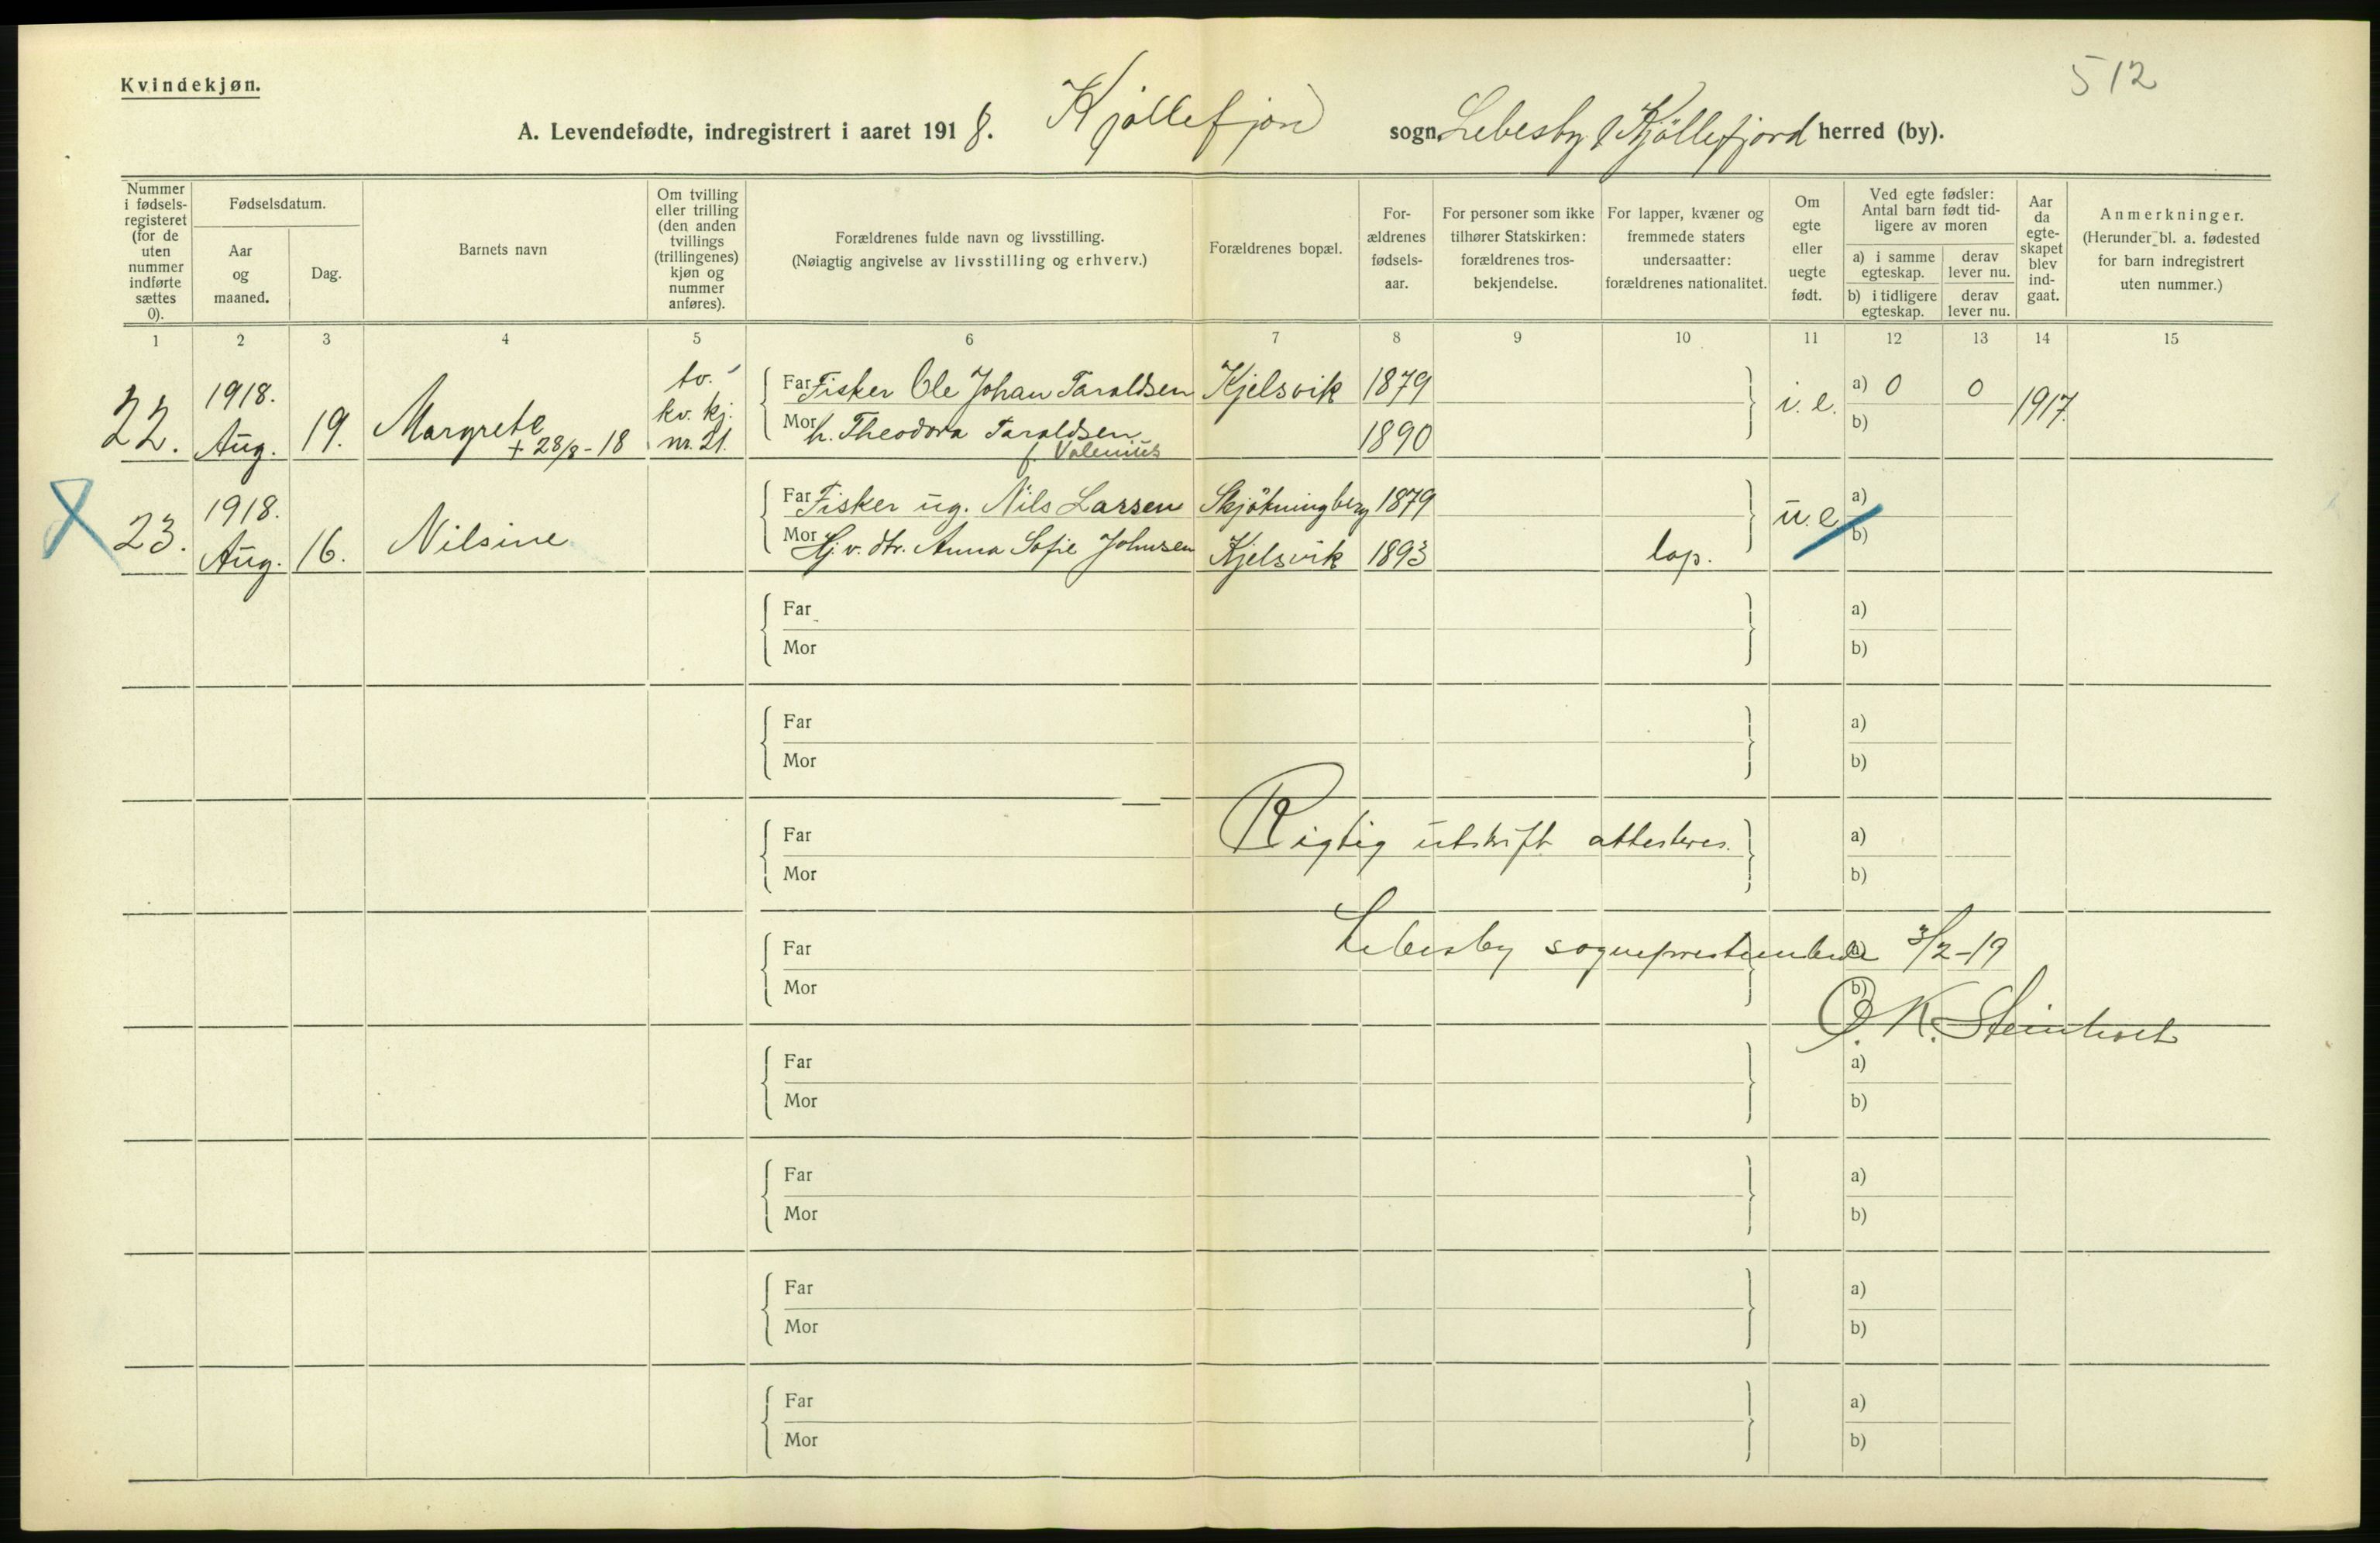 512
Kvindekjøn.
A. Levendefødte, indregistrert i aaret 1918. Kjøllefjord sogn, Lebesby / Kjøllefjord herred (by).
Nummer i fødsels-registeret (for de uten nummer indførte sættes 0).
Fødselsdatum.
Aar og maaned.
Dag.
Barnets navn
Om tvilling eller trilling (den anden tvillings (trillingenes) kjøn og nummer anføres).
Forældrenes fulde navn og livsstilling.
(Nøiagtig angivelse av livsstilling og erhverv.)
Forældrenes bopæl.
For-ældrenes fødsels-aar.
For personer som ikke tilhører Statskirken: forældrenes tros-bekjendelse.
For lapper, kvæner og fremmede staters undersaatter: forældrenes nationalitet.
Om egte eller uegte født.
Ved egte fødsler: Antal barn født tid-ligere av moren
a) i samme egteskap. derav lever nu.
b) i tidligere egteskap. derav lever nu.
Aar da egte-skapet blev ind-gaat.
Anmerkninger.
(Herunder bl. a. fødested for barn indregistrert uten nummer.)
1 2 3 4 5 6 7 8 9 10 11 12 13 14 15
22. 1918. Aug. 19. Margrete + 28/8-18 tv. kv. kj. nr. 21.
Far Fisker Ole Johan Taraldsen Kjelsvik 1879 i. e. a) 0 0 1917.
Mor h. Theodora Taraldsen f. Valenius 1890 b)
23. 1918. Aug. 16. Nilsine
Far Fisker ug. Nils Larsen Skjøtningberg 1879 u. e. a)
Mor Hj. v. dtr. Anna Sofie Johnsen Kjelsvik 1893 lap. b)
Far a)
Mor b)
Far a)
Mor b)
Far Rigtig utskrift attesteres. a)
Mor b)
Far Lebesby sogneprestembede 3/2-19
Mor b)
O. K. Steinholt
Far a)
Mor b)
Far a)
Mor b)
Far a)
Mor b)
Far a)
Mor b)